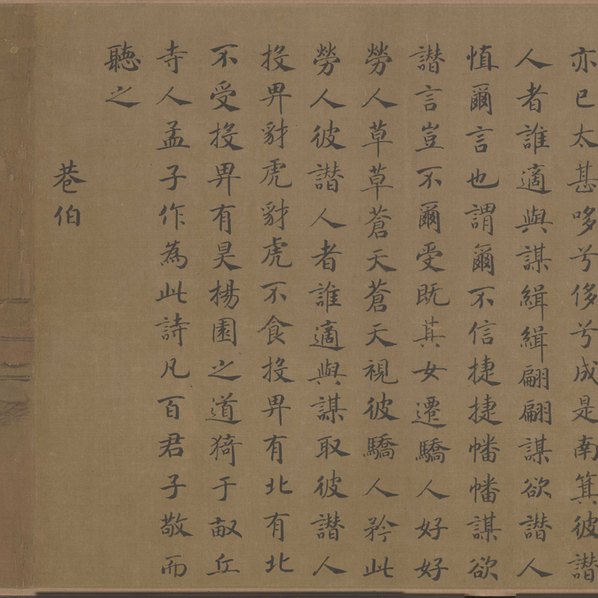 亦已太甚哆兮侈兮成是南箕彼譖
人者誰適與謀緝緝翩翩謀欲譖人
慎爾言也謂爾不信捷捷幡幡謀欲
譖言豈不爾受既其女遷驕人好好
勞人草草蒼天蒼天視彼驕人矜此
勞人彼譖人者誰適與謀取彼譖人
投畀豺虎豺虎不食投畀有北有北
不受投畀有昊楊園之道猗于畝丘
寺人孟子作為此詩凡百君子敬而
聽之
巷伯